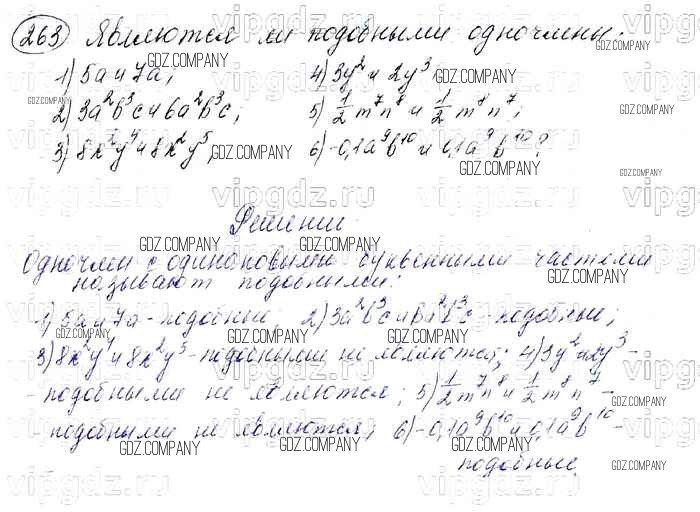 263 Являются ли подобными одночлены:
1) 5a и 7a; 4) 3y² и 2y³;
2) 3a²b³c и 6a²b³c; 5) 1/2 m⁷n⁸ и 1/2 m⁸n⁷;
3) 8x²y⁴ и 8x²y⁵; 6) -0,1a⁹b¹⁰ и 0,1a⁹b¹⁰?
Решение
Одночлен с одинаковыми буквенными частями
называют подобными:
1) 5a и 7a - подобные, 2) 3a²b³c и 6a²b³c - подобные;
3) 8x²y⁴ и 8x²y⁵ - подобными не являются; 4) 3y² и 2y³ -
- подобными не являются; 5) 1/2 m⁷n⁸ и 1/2 m⁸n⁷ -
- подобными не являются, 6) -0,1a⁹b¹⁰ и 0,1a⁹b¹⁰ -
подобные.